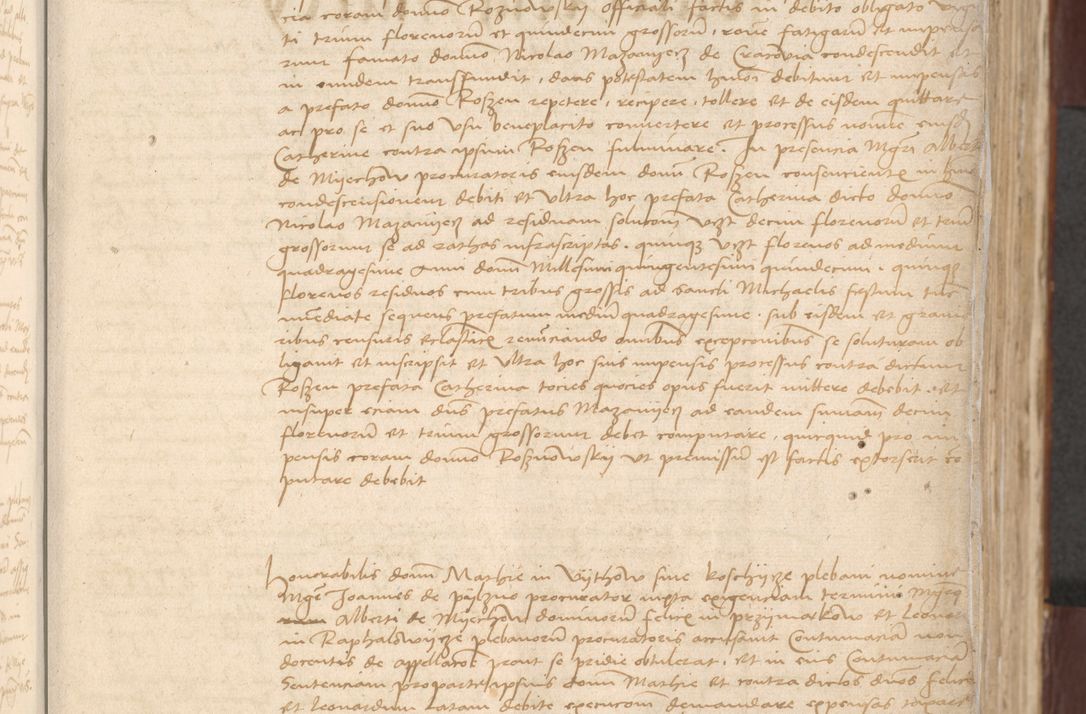 cia coram domno Roznowskij officiali factis in debito obligato
ti trium florenorū et quindecim grossorū, racōe fatigarū et impensa
rum famato domno Nicolao Mazanijecz de Cracovia condescendit et
in eundem transfundit, dans potestatem hmōi debitum et impensas
a prefato domno Roszen repetere, recipere, tollere et de eisdem quittare
ac pro se et suo usu beneplacito convertere et processus nomine eiusdē
Catherine contra ipsum Roszen fulminare. In presencia Mgrī Alberti
de Mijechow procuratoris eiusdem domnī Roszen consencientis in hmōi
condescensionem debiti et ultra hoc prefata Catherina dicto domno
Nicolao Mazanijecz ad residuam solucōem vzt decem florenorū et trium
grossorum se ad rathas infrascriptas. quinqz vzt florenos ad medium
quadragesime anni domnī Millesimi quingentesimi quindecimi, quinqz
florenos residuos cum tribus grossis ad sancti Michaelis festum tūc
immediate sequens prefatum mediū quadragesime. sub eisdem et gravi
ribus censuris eclasticis renūciando omnibus excepconibus se soluturam ob
ligavit et inscripsit et ultra hoc suis impensis processus contra dictum
Roszen prefata Catherina tocies quocies opus fuerit mittere debebit. et
insuper eciam dnūs prefatus Mazanijecz ad eandem sumam decem
florenorū et trium grossorum debet computare, quicquid pro im
pensis coram domno Roznowskij ut premissū est factis extorserit cō
putare debebit
Honorabilis domnī Mathie in Vijthow sive Koschijcze plebani nomine
Mgr Joannes de Pijlzno procurator iuxta exigenciam termini
Alberti de Mijechow dominorū Felicis in Przijmarkow et Leonar
in Raphalowijcze plebanorū procuratoris accusavit Contumaciam non
docentis de appellacōe prout se pridie obtulerat, et in eius Contumaciā
Sentenciam pro parte ipsius domnī Mathie et contra dictos dnos Felice
et Leonardum latam debite execucōi demandare expensas taxare